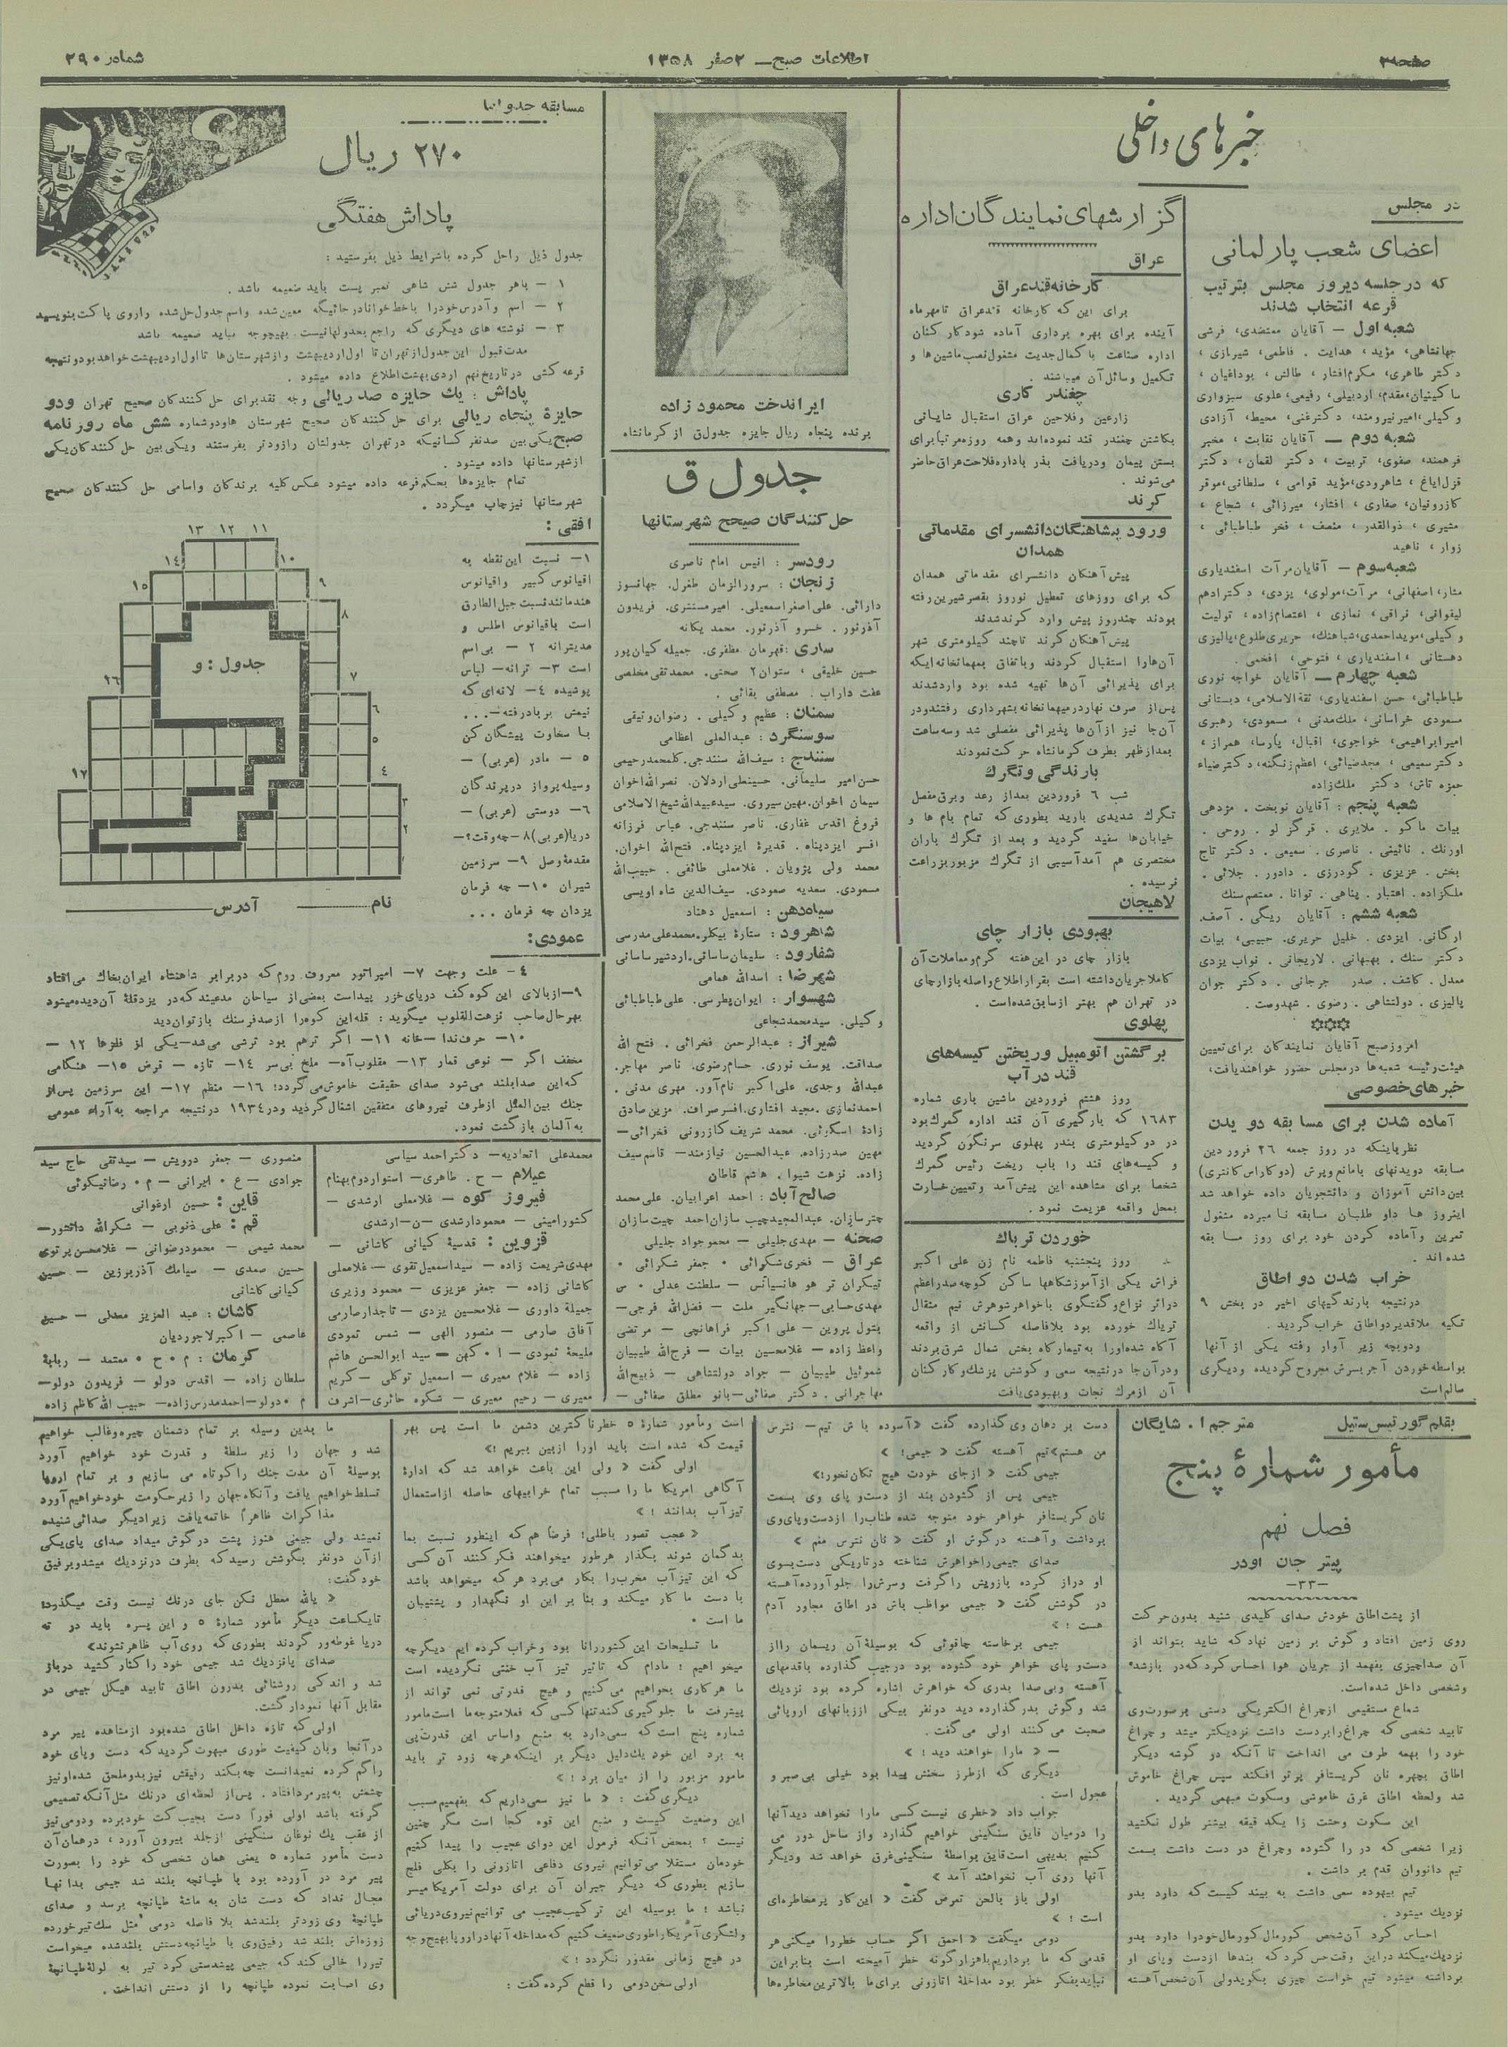 صفحه ۳
اطلاعات صبح – ۲ صفر ۱۳۵۸
شماره ۲۹۰
خبرهای داخلی
در مجلس
اعضای شعب پارلمانی
که در جلسه دیروز مجلس بترتیب
قرعه انتخاب شدند
شعبه اول – آقایان معتضدی، فرشی
جهانشاهی، مؤید، هدایت . فاطمی، شیرازی،
دکتر طاهری، مکرم افشار، طالش، بوداغیان،
ساکینیان، مقدم، اردبیلی، رفیعی، علوی سبزواری
وکیلی، امیر نیرومند، دکتر غنی، محیط، آزادی
شعبه دوم – آقایان نقابت، مخبر
فرهمند، صفوی، تربیت، دکتر لقمان، دکتر
قزل ایاغ، شاهرودی، مؤید قوامی، سلطانی، موقر
کازرونیان، صفاری، افشار، میرزائی، شجاع،
مشیری، ذوالقدر، منصف، فخر طباطبائی،
زوار، ناهید
شعبه سوم – آقایان مرآت اسفندیاری
شعبه چهارم – آقایان خواجه نوری
طباطبائی، حسن اسفندیاری، ثقة الاسلامی، دبستانی
مسعودی خراسانی، ملک مدنی، مسعودی، رهبری
امیر ابراهیمی، خواجوی، اقبال، پارسا، همراز،
دکتر سمیعی، مجد ضیائی، اعظم زنگنه، دکتر ضیاء
حمزه تاش، دکتر ملک زاده
شعبه پنجم : آقایان نوبخت . مژدهی
بیات ماکو . ملایری . قرگز لو . روحی .
اورنگ . نائینی . ناصری . سمیعی . دکتر تاج
بخش . عزیزی . گودرزی . دادور . جلائی .
ملکزاده . اعتبار . پناهی . توانا . معتصم سنک
شعبه ششم : آقایان ریگی . آصف.
ارگانی . ایزدی . خلیل حریری. حبیبی، بیات
دکتر سنک . بهبهانی . لاریجانی . نواب یزدی
معدل . کاشف . صدر . جرجانی . دکتر جوان
پالیزی . دولتشاهی . رضوی . شهدوست .
امروز صبح آقایان نمایندگان برای تعیین
هیئت رئیسه شعبه ها در مجلس حضور خواهند یافت.
خبرهای خصوصی
آماده شدن برای مسابقه دویدن
نظر باینکه در روز جمعه ۲۶ فروردین
مسابقه دویدنهای بامانع وپرش (دوکراس کانتری)
بین دانش آموزان و دانشجویان داده خواهد شد
اینروز ها داو طلبان مسابقه نامبرده مشغول
تمرین وآماده کردن خود برای روز مسابقه
شده اند .
خراب شدن دو اطاق
درنتیجه بارندگیهای اخیر در بخش ۹
تکیه ملاقدیر دو اطاق خراب گردید .
ودوبچه زیر آوار رفته یکی از آنها
بواسطه خوردن آجر بسرش مجروح گردیده ودیگری
سالم است
گزارشهای نمایندگان اداره
عراق
کارخانه قند عراق
برای این که کارخانه قند عراق تا مهرماه
آینده برای بهره برداری آماده شود کارکنان
اداره صناعت با کمال جدیت مشغول نصب ماشین ها و
تکمیل وسائل آن میباشند .
چغندر کاری
زارعین وفلاحین عراق استقبال شایانی
بکاشتن چغندر قند نموده اند وهمه روزه مرتباً برای
بستن پیمان ودریافت بذر باداره فلاحت عراق حاضر
می شوند .
کرند
ورود پیشاهنگان دانشسرای مقدماتی
همدان
پیش آهنگان دانشسرای مقدماتی همدان
که برای روزهای تعطیل نوروز بقصر شیرین رفته
بودند چندروز پیش وارد کرند شدند
پیش آهنگان کرند تا چند کیلومتری شهر
آن هارا استقبال کردند وباتفاق بمهمانخانه ایکه
برای پذیرائی آن ها تهیه شده بود واردشدند
پس از صرف نهار درمیهمانخانه بشهرداری رفتند ودر
آن جا نیز ازآن ها پذیرائی مفصلی شد وسه ساعت
بعد از ظهر بطرف کرمانشاه حرکت نمودند
بارندگی وتگرگ
شب ۶ فروردین بعداز رعد وبرق مفصل
تگرگ شدیدی بارید بطوری که تمام بام ها و
خیابان ها سفید گردید و بعد از تگرگ باران
مختصری هم آمد آسیبی از تگرگ مزبور بزراعت
نرسیده .
لاهیجان
بهبودی بازار چای
بازار چای در این هفته گرم ومعاملات آن
کاملا جریان داشته است بقرار اطلاع واصله بازار چای
در تهران هم بهتر از سابق شده است .
پهلوی
برگشتن اتومبیل وریختن کیسه های
قند در آب
روز هشتم فروردین ماشین باری شماره
۱۶۸۳ که بارگیری آن قند اداره گمرک بود
در دو کیلومتری بندر پهلوی سرنگون گردید
و کیسه های قند را باب ریخت رئیس گمرک
شخصاً برای مشاهده این پیش آمد وتعیین خسارت
بمحل واقعه عزیمت نمود .
خوردن تریاک
روز پنجشنبه فاطمه نام زن علی اکبر
فراش یکی از آموزشگاهها ساکن کوچه صدراعظم
دراثر نزاع وگفتگوی باخواهر شوهرش نیم مثقال
تریاک خورده بود بلافاصله کسانش از واقعه
آگاه شده اورا به تیمارگاه بخش شمال شرق بردند
ودرآن جا درنتیجه سعی و کوشش پزشک وکارکنان
آن ازمرگ نجات وبهبودی یافت
ایراندخت محمود زاده
برنده پنجاه ریال جایزه جدول ق از کرمانشاه
جدول ق
حل کنندگان صحیح شهرستانها
رودسر : انیس امام ناصری
زنجان : سرورالزمان طغرل. جهانسوز
دارائی. علی اصغر اسمعیلی. امیر مستنری. فریدون
آذرنور. خسرو آذرنور. محمد یگانه
ساری : قهرمان مظفری. جمیله کیان پور
حسین خلیقی، ستوان ۲ صحتی. محمد تقی مخلصی
عفت داراب. مصطفی بقائی.
سمنان : عظیم وکیلی. رضوان وثیقی
سوسنگرد : عبدالعلی اعظامی
سنندج : سیف الله سنندجی. کلمحمد رحیمی
حسن امیر سلیمانی. حسینعلی اردلان. نصرالله اخوان
سیمان اخوان. مهین سیروی. سید عبیدالله شیخ الاسلامی
فروغ اقدس غفاری. ناصر سنندجی. عباس فرزانه
افسر ایزدپناه. قدیره ایزدپناه. فتح الله اخوان.
محمد ولی پژویان. غلامعلی طائفی. حبیب الله
مسعودی. سعدیه صعودی. سیف الدین شاه اویسی
سیاه دهن : اسمعیل دهناد
شاهرود : ستاره بیکلر. محمدعلی مدرسی
شفارود : سلیمان ساسانی. اردشیر ساسانی
شهرضا : اسدالله همامی
شهسوار : ایوان پطرسی. علی طباطبائی
وکیلی. سید محمد شجاعی
شیراز : عبدالرحمن فخرائی. فتح الله
صداقت. یوسف نوری. حسام رضوی. ناصر مهاجر.
عبدالله وجدی. علی اکبر نام آور. مهری مدنی.
احمد نمازی. مجید افتاری. افسر صراف. مزین صادق
زاده اسکوئی. محمد شریف کازرونی فخرائی–
مهین صدرزاده. عبدالحسین نمازی– قاسم سیف
زاده. نزهت شیوا. هاشم قاطان
صالح آباد : احمد اعرابیان. علی محمد
چتر سازان. عبدالمجید چیت سازان احمد چیت سازان
صحنه – مهدی جلیلی – محمد جواد جلیلی
عراق – فخری شکرائی . جعفر شکرائی .
تیکران تر هو هانسیانس – سلطنت عدلی . س
مهدی حسابی – جهانگیر ملت – فضل الله فرجی –
بتول پروین – علی اکبر فراهانچی – مرتضی
واعظ زاده – غلامحسین بیات – فرج الله طبیبیان
شموئیل طبیبیان – جواد دولتشاهی – ذبیح الله
مهاجرانی. دکتر صفائی – بانو مطلق صفائی –
مسابقه جدولها
۲۷۰ ریال
پاداش هفتگی
جدول ذیل را حل کرده با شرایط ذیل بفرستید :
۱ – باهر جدول شش شاهی تمبر پست باید ضمیمه باشد .
۲ – اسم وآدرس خودرا باخط خوانا درجائیکه معین شده واسم جدول حل شده را روی پاکت بنویسید
۳ – نوشته های دیگری که راجع بجدولهانیست . بهیچوجه نباید ضمیمه باشد
مدت قبول این جدول از تهران تا اول اردیبهشت و از شهرستان ها تا اول اردیبهشت خواهد بود و نتیجه
قرعه کشی در تاریخ نهم اردی بهشت اطلاع داده میشود .
پاداش : یک جایزه صد ریالی وجه نقد برای حل کنندگان صحیح تهران ودو
جایزه پنجاه ریالی برای حل کنندگان صحیح شهرستان ها ودو شماره شش ماه روزنامه
صبح یکی بین صد نفر کسانیکه در تهران جدولشان را زودتر بفرستند ویکی بین حل کنندگان یکی
از شهرستانها داده میشود .
تمام جایزه ها بحکم قرعه داده میشود عکس کلیه برندگان واسامی حل کنندگان صحیح
شهرستانها نیز چاپ میگردد .
افقی :
۱– نسبت این نقطه به
اقیانوس کبیر واقیانوس
هند مانند نسبت جبل الطارق
است باقیانوس اطلس و
مدیترانه ۲ – بی اسم
است ۳– ترانه– لباس
پوشیده ۴– لانه ای که
نیمش برباد رفته – ...
با سخاوت پیشگان کن
۵ – مادر (عربی) –
وسیله پرواز در پرندگان
۶– دوستی (عربی) –
دریا (عربی) ۸ – چه وقت؟ –
مقدمه وصل ۹– سرزمین
شیران ۱۰– چه فرمان
یزدان چه فرمان ...
۱۳ ۱۲ ۱۱
۱۴ ۱۰
۱۵ ۹
۸
جدول : و
۱۶ ۷
۶
۵
۱۷ ۴
۳
۲
۱
نام آدرس
عمودی :
۴– علت وجهت ۷– امپراتور معروف روم که دربرابر شاهنشاه ایران بخاک می افتاد
۹– از بالای این کوه کف دریای خزر پیداست بعضی از سیاحان مدعیند که در یزد قله آن دیده میشود
بهر حال صاحب نزهت القلوب میگوید : قله این کوه را از صد فرسنگ باز توان دید
۱۰– حرف ندا – خانه ۱۱– اگر ترهم بود ترشی می شد – یکی از فلزها ۱۲ –
مخفف اگر – نوعی قمار ۱۳– مقلوب آه – ملخ بی سر ۱۴– تازه – قرض ۱۵– هنگامی
که این صدا بلند می شود صدای حقیقت خاموش می گردد! ۱۶– منظم ۱۷– این سرزمین پس از
جنگ بین الملل از طرف نیروهای متفقین اشغال گردید ودر ۱۹۳۴ درنتیجه مراجعه به آراء عمومی
به آلمان باز گشت نمود .
محمدعلی اتحادیه – دکتر احمد سیاسی
عیلام – ح . طاهری – استوار دوم بهنام
فیروز کوه – غلامعلی ارشدی –
کشور امینی – محمود ارشدی – ن – ارشدی
قزوین : قدسیه کیانی کاشانی –
مهدی شریعت زاده – سید اسمعیل تقوی – غلامعلی
کاشانی زاده – جعفر عزیزی – محمود وزیری
جمیله داوری – غلامحسین یزدی – تاجدار صارمی
آفاق صارمی – منصور الهی – شمس نمودی
ملیحه نمودی – ا . کهن – سید ابوالحسن هاشم
زاده – غلام معیری – اسمعیل توکلی – کریم
معیری – رحیم معیری – شکوه حائری – اشرف
منصوری – جعفر درویش – سید تقی حاج سید
جوادی – ع . ایرانی – م . رضا نیکوئی
قاین : حسین ارغوانی
قم : علی ذنوبی – شکرالله دانشور –
محمد شیمی – محمود رضوانی – غلامحسن پرتوی
حسین صمدی – سیامک آذربرزین – حسین
کیانی کاشانی
کاشان : عبد العزیز معدلی – حسین
عاصمی – اکبر لاجوردیان
کرمان : م . ح . معتمد – ربابه
سلطان زاده – اقدس دولو – فریدون دولو –
م . دولو – احمد مدرس زاده – حبیب الله کاظم زاده
بقلم گورتیس ستیل
مترجم ا . شایگان
مأمور شماره پنج
فصل نهم
پیتر جان اودر
–۳۳–
از پشت اطاق خودش صدای کلیدی شنید بدون حرکت
روی زمین افتاد و گوش بر زمین نهاد که شاید بتواند از
آن صدا چیزی بفهمد از جریان هوا احساس کرد که در باز شد
وشخصی داخل شده است .
شعاع مستقیمی از چراغ الکتریکی دستی بر صورت وی
تابید شخصی که چراغ را بردست داشت نزدیکتر میشد و چراغ
خود را بهمه طرف می انداخت تا آنکه دو گوشه دیگر
اطاق بچهره نان کریستافر پرتو افکند سپس چراغ خاموش
شد ولحظه اطاق غرق خاموشی وسکوت مبهمی گردید .
این سکوت وحشت زا یکدقیقه بیشتر طول نکشید
زیرا شخصی که در را گشوده وچراغ در دست داشت بسمت
تیم دانووان قدم بر داشت .
تیم بیهوده سعی داشت به بیند کیست که دارد بدو
نزدیک میشود .
احساس کرد آن شخص کورمال کورمال خودرا دارد بدو
نزدیک میکند دراین وقت حس کرد که بندها ازدست وپای او
برداشته میشود تیم خواست چیزی بگوید ولی آن شخص آهسته
دست بر دهان وی گذارده گفت « آسوده باش تیم – نترس
من هستم » تیم آهسته گفت « جیمی! »
جیمی گفت « از جای خودت هیچ تکان نخور! »
جیمی پس از گشودن بند از دست و پای وی بسمت
نان کریستافر خواهر خود متوجه شده طناب را از دست وپای وی
برداشت وآهسته در گوش او گفت « نان نترس منم »
صدای جیمی را خواهرش شناخته در تاریکی دست بسوی
او دراز کرده بازویش را گرفت وسرش را جلو آورده آهسته
در گوشش گفت « جیمی مواظب باش در اطاق مجاور آدم
هست! »
جیمی برخاسته چاقوئی که بوسیله آن ریسمان را از
دست و پای خواهر خود گشوده بود درجیب گذارده باقدمهای
آهسته وبی صدا بدری که خواهرش اشاره کرده بود نزدیک
شد وگوش بدر گذارده دید دونفر بیکی از زبانهای اروپائی
صحبت می کنند اولی می گفت .
– « مارا خواهند دید! »
دیگری که از طرز سخنش پیدا بود خیلی بی صبر و
عجول است .
جواب داد « خطری نیست کسی مارا نخواهد دید آنها
را درمیان قایق سنگینی خواهیم گذارد و از ساحل دور می
کنیم بدیهی است قایق بواسطه سنگینی غرق خواهد شد ودیگر
آنها روی آب نخواهند آمد »
اولی باز بالحن تعرض گفت « این کار پر مخاطره ای
است! »
دومی میگفت « احمق اگر حساب خطر را میکنی هر
قدمی که ما برداریم با هزار گونه خطر آمیخته است بنابراین
نباید بفکر خطر بود مداخله اتازونی برای ما بالاترین مخاطره ها
است ومأمور شماره ۵ خطرناکترین دشمن ما است پس بهر
قیمت که شده است باید اورا ازبین ببریم! »
اولی گفت « ولی این باعث خواهد شد که اداره
آگاهی امریکا ما را مسبب تمام خرابیهای حاصله از استعمال
تیز آب بدانند! »
« عجب تصور باطلی! فرضاً هم که اینطور نسبت بما
بدگمان شوند بگذار هرطور میخواهند فکر کنند آن کسی
که این تیز آب مخرب را بکار می برد هر که میخواهد باشد
با دست ما کار میکند و بنا بر این او نگهدار و پشتیبان
ما است .
ما تسلیحات این کشور را نابود وخراب کرده ایم دیگر چه
میخواهیم! مادام که تاثیر تیز آب خنثی نگردیده است
ما هرکاری بخواهیم می کنیم و هیچ قدرتی نمی تواند از
پیشرفت ما جلوگیری کند تنها کسی که فعلا متوجه ما است مامور
شماره پنج است که سعی دارد به منبع واساس این قدرت پی
به برد این خود یک دلیل دیگر بر اینکه هرچه زود تر باید
مامور مزبور را از میان برد! »
دیگری گفت : « ما نیز سعی داریم که بفهمیم مسبب
این وضعیت کیست و منبع این قوه کجا است مگر چنین
نیست؟ بمحض آنکه فرمول این دوای عجیب را پیدا کنیم
خودمان مستقلا می توانیم نیروی دفاعی اتازونی را بکلی فلج
سازیم بطوری که دیگر جبران آن برای دولت آمریکا میسر
نباشد! ما بوسیله این ترکیب عجیب می توانیم نیروی دریائی
ولشگری آمریکا را طوری ضعیف کنیم که مداخله آنها در اروپا بهیچ وجه
در هیچ زمانی مقدور نگردد! »
اولی سخن دومی را قطع کرده گفت :
ما بدین وسیله بر تمام دشمنان چیره وغالب خواهیم
شد و جهان را زیر سلطه و قدرت خود خواهیم آورد
بوسیله آن مدت جنگ را کوتاه می سازیم و بر تمام اروپا
تسلط خواهیم یافت وآنگاه جهان را زیر حکومت خود خواهیم آورد
مذاکرات ظاهراً خاتمه یافت زیرا دیگر صدائی شنیده
نمیشد ولی جیمی هنوز پشت در گوش میداد صدای پای یکی
از آن دونفر بگوشش رسید که بطرف در نزدیک میشد وبرفیق
خود گفت :
« یالله معطل نکن جای درنگ نیست وقت میگذرد!
تا یکساعت دیگر مأمور شماره ۵ و این پسره باید در ته
دریا غوطه ور گردند بطوری که روی آب ظاهر نشوند »
صدای پا نزدیک شد جیمی خود را کنار کشید در باز
شد و اندکی روشنائی بدرون اطاق تابید هیکل جیمی در
مقابل آنها نمودار گشت .
اولی که تازه داخل اطاق شده بود از مشاهده پیر مرد
در آنجا وبان کیفیت طوری مبهوت گردید که دست وپای خود
را گم کرده نمیدانست چه بکند رفیقش نیز بدو ملحق شده اونیز
چشمش به پیر مرد افتاد . پس از لحظه ای درنگ مثل آنکه تصمیمی
گرفته باشد اولی فوراً دست بجیب کت خود برده ودومی نیز
از عقب یک نوغان سنگینی از جلد بیرون آورد، درهمان آن
دست مأمور شماره ۵ یعنی همان شخصی که خود را بصورت
پیر مرد در آورده بود با طپانچه بلند شد جیمی بدانها
مجال نداد که دست شان به ماشه طپانچه برسد و صدای
طپانچه وی زودتر بلند شد بلا فاصله دومی مثل سگ تیر خورده
زوزه اش بلند شد رفیق وی با طپانچه دستش بلند شده میخواست
تیر را خالی کند که جیمی پیشدستی کرد تیر به لوله طپانچه
وی اصابت نموده طپانچه را از دستش انداخت .